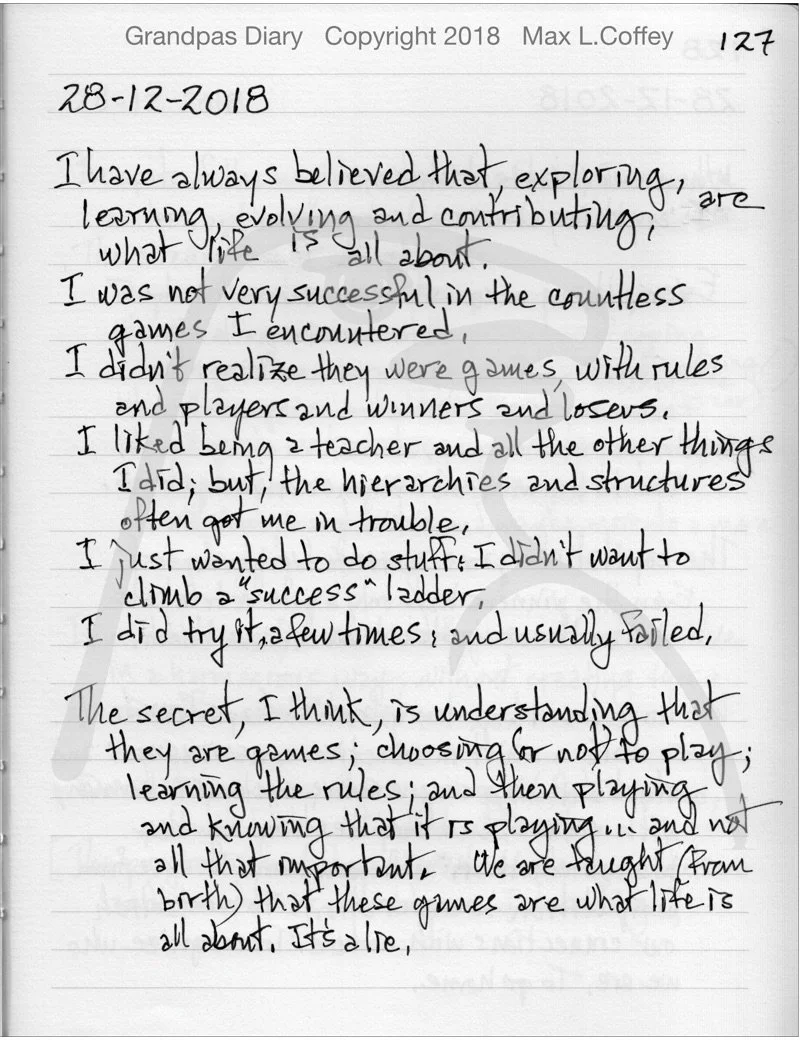 Grandpas Diary Copyright 2018 Max L.Coffey 127
28-12-2018
I have always believed that, exploring,
learning, evolving and contributing, are
what life is all about.
I was not very successful in the countless
games I encountered.
I didn't realize they were games, with rules
and players and winners and losers.
I liked being a teacher and all the other things
I did; but, the hierarchies and structures
often got me in trouble.
I just wanted to do stuff; I didn't want to
climb a "success" ladder.
I did try it, a few times; and usually failed.
The secret, I think, is understanding that
they are games; choosing (or not) to play;
learning the rules; and then playing
and knowing that it is playing... and not
all that important. We are taught (from
birth) that these games are what life is
all about. It's a lie.